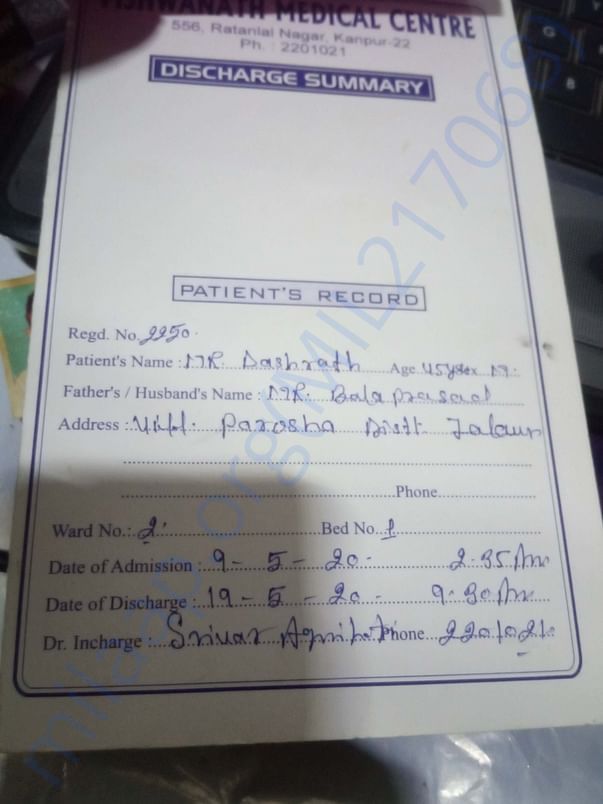 VISHWANATH MEDICAL CENTRE
556, Ratanlal Nagar, Kanpur-22
Ph. : 2201021
DISCHARGE SUMMARY
PATIENT'S RECORD
Regd. No. 2250.
Patient's Name : MR. Dashrath Age 45y Sex M.
Father's / Husband's Name : MR. Bala Prasad
Address : Vill. Parosha Distt. Jalaun
Phone
Ward No.: 2 Bed No. 1
Date of Admission : 9 - 5 - 20 - 2.35 Am
Date of Discharge : 19 - 5 - 20 - 9.30 Am
Dr. Incharge : Phone 2201021
milaap.org(MIL2170681